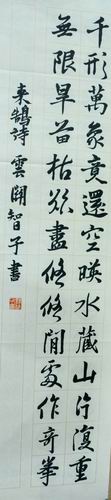 千形萬象竟還空暎水藏山片復重
無限旱苗枯欲盡悠悠閒處作奇峯
来鵠詩雲開智子書